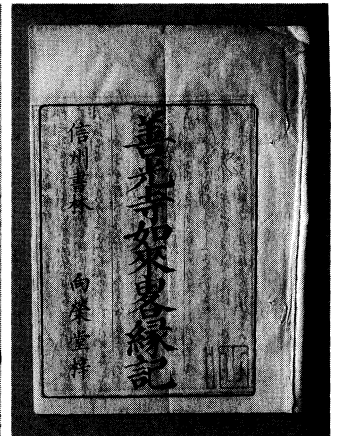 善光寺如來畧縁記
信州書林　向榮堂梓